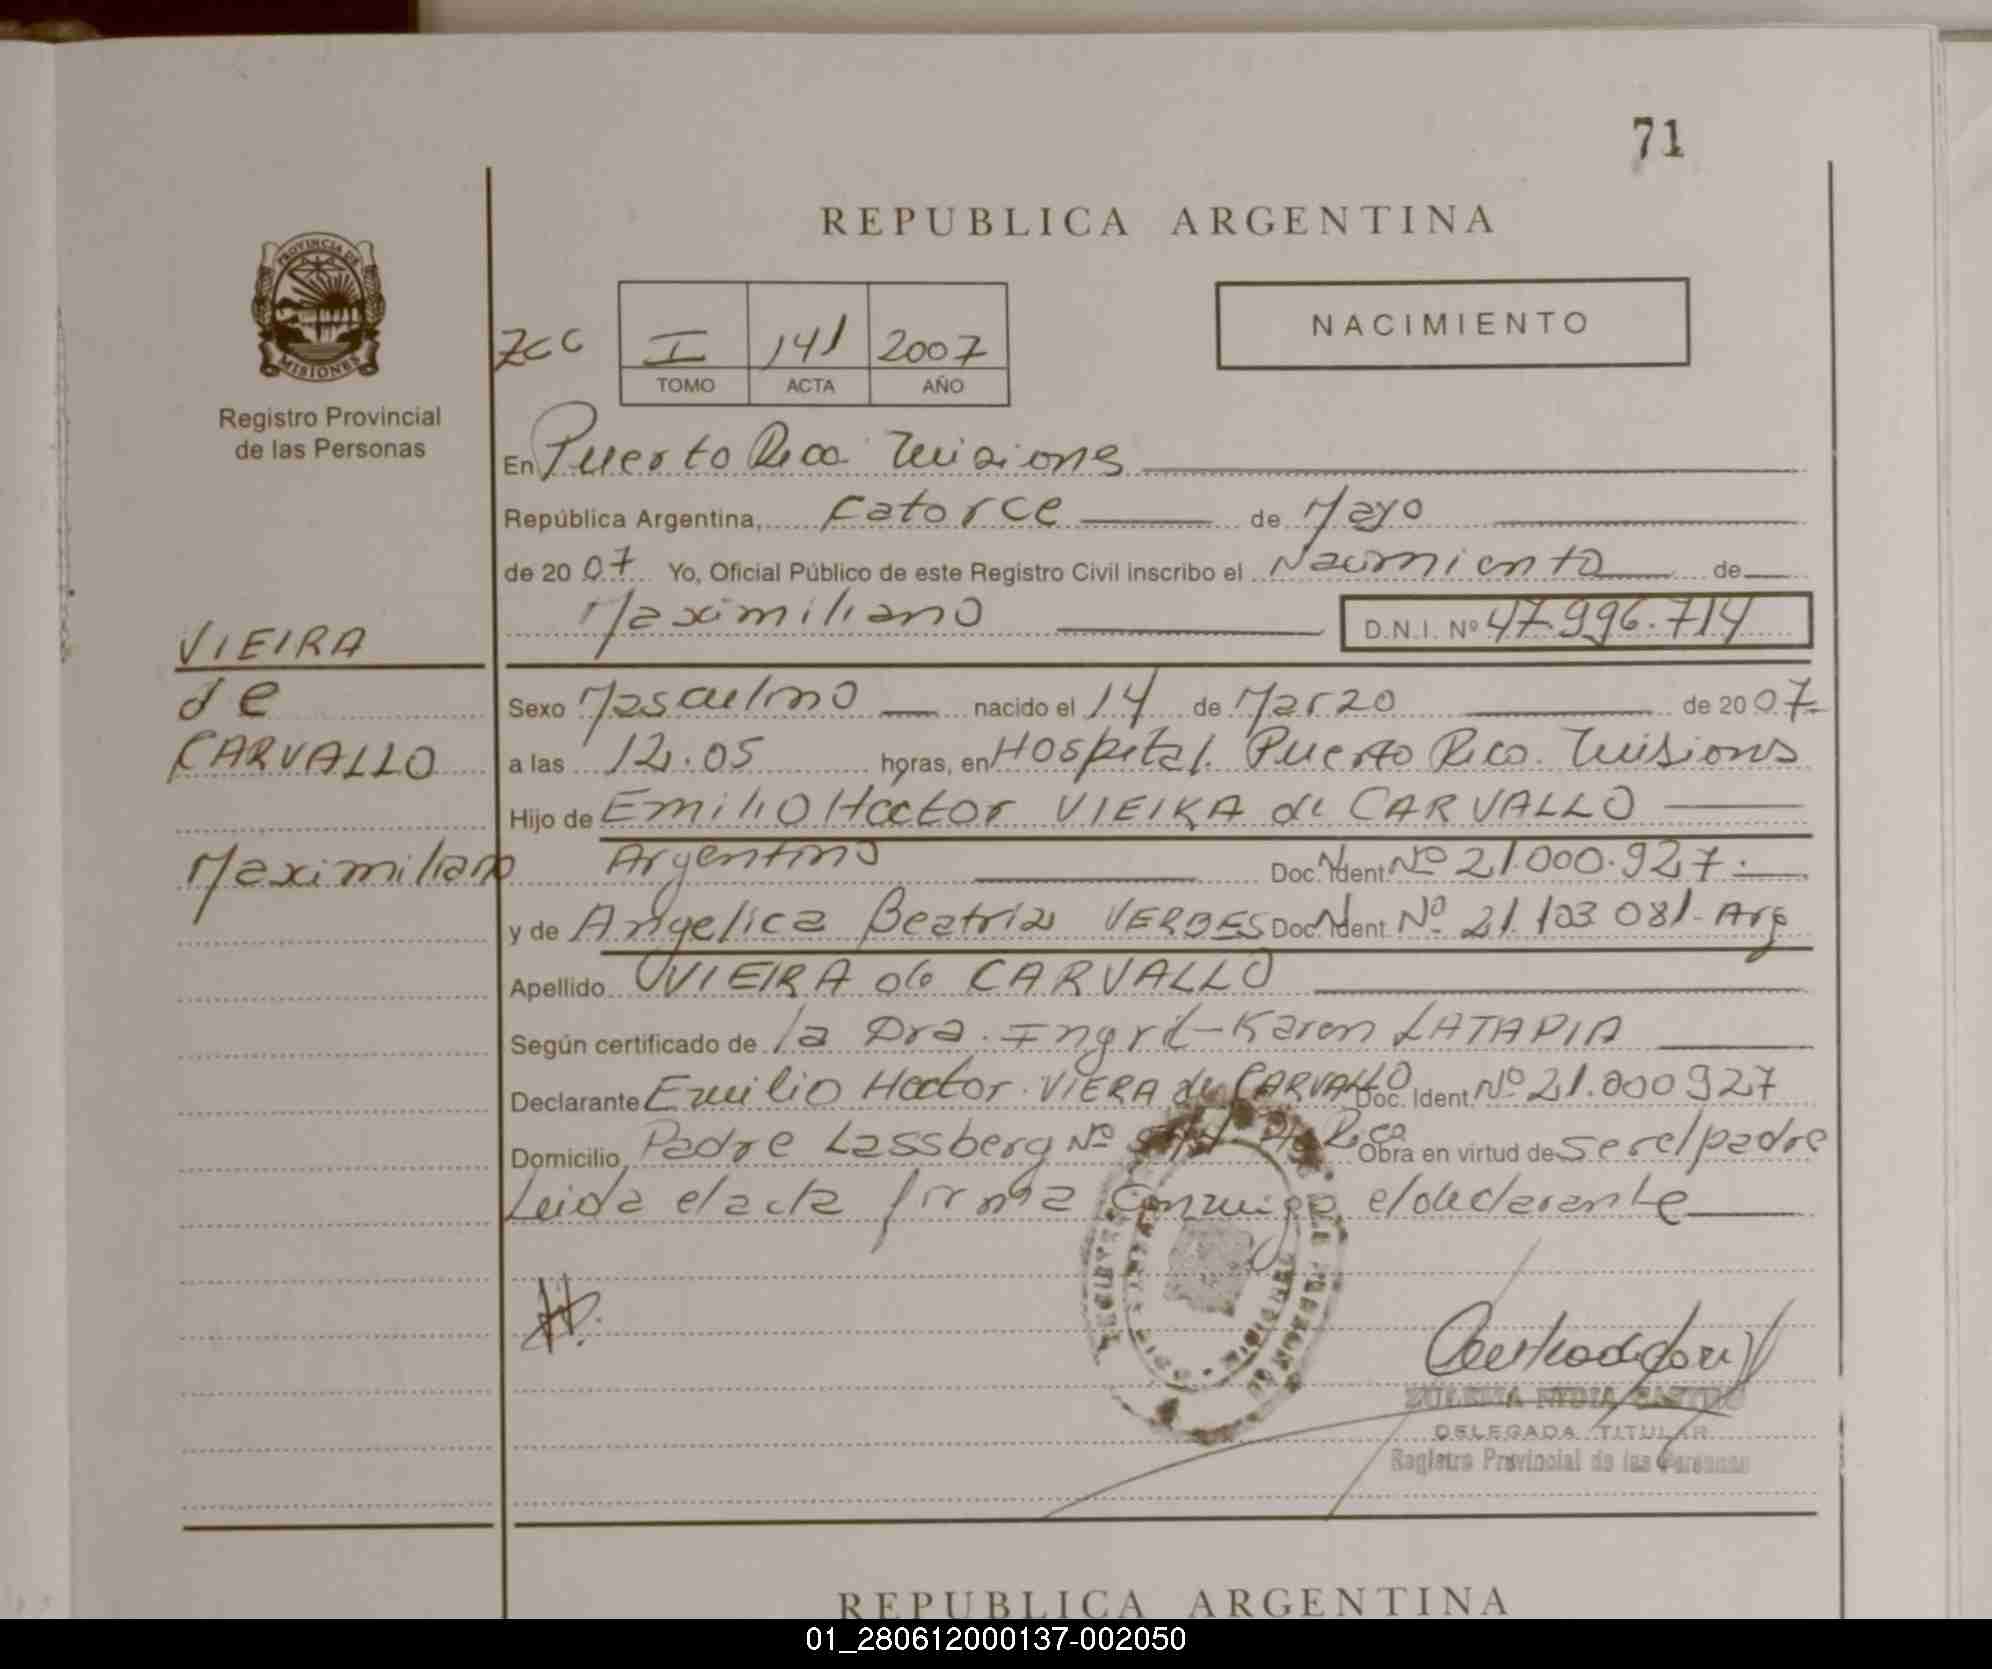 71
REPUBLICA ARGENTINA
PROVINCIA DE
MISIONES
Registro Provincial
de las Personas
I 141 2007
TOMO ACTA AÑO
NACIMIENTO
En Puerto Rico Misiones
República Argentina, catorce de Mayo
de 2007 Yo, Oficial Público de este Registro Civil inscribo el Nacimiento de
Maximiliano D.N.I. Nº 47.996.714
VIEIRA
de
CARVALLO
Maximiliano
Sexo Masculino nacido el 14 de Marzo de 2007
a las 12.05 horas, en Hospital. Puerto Rico. Misiones
Hijo de Emilio Hector VIEIRA de CARVALLO
Argentino Doc. Ident Nº 21.000.927.
y de Angelica Beatriz VERBES Doc. Ident. Nº 21.103 081- Arg
Apellido VIEIRA de CARVALLO
Según certificado de la Dra. Ingrid-Karen LATAPIA
Declarante Emilio Hector VIERA de CARVALLO Doc. Ident. Nº 21.000927
Domicilio Padre Lassberg Nº Rico Obra en virtud de ser el padre
Leida el acta firma conmigo el declarante
NIDIA CASTRO
DELEGADA TITULAR
Registro Provincial de las Personas
REPUBLICA ARGENTINA
01_280612000137-002050